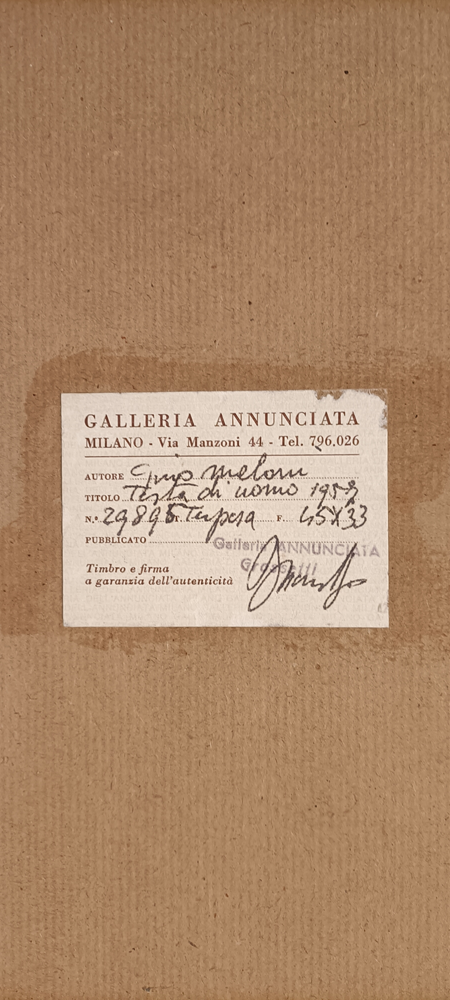 GALLERIA ANNUNCIATA
MILANO - Via Manzoni 44 - Tel. 796.026
AUTORE Gino Meloni
TITOLO Testa di uomo 1953
N.º 29895 T. Tempera F. 45X33
PUBBLICATO
Galleria ANNUNCIATA
Timbro e firma
a garanzia dell'autenticità